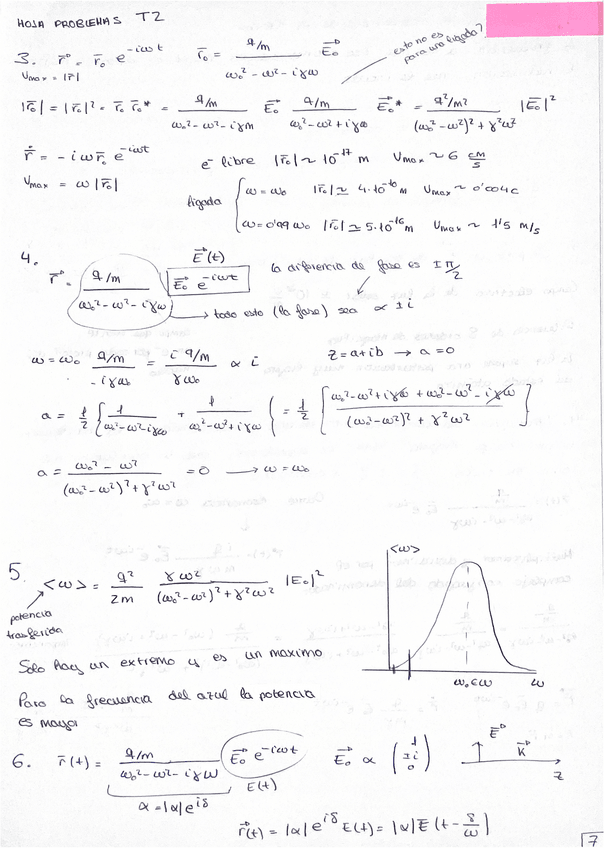 HOJA PROBLEMAS T2
3. r⃗ = r̄₀ e^{-iωt}   r̄₀ = (q/m)/(ω₀² - ω² - iγω) E⃗₀   esto no es para una ligada?
Vmax = |ṙ|
|r̄₀| = |r̄₀|² = r̄₀ r̄₀* = (q/m)/(ω₀² - ω² - iγm) E⃗₀ (q/m)/(ω₀² - ω² + iγω) E⃗₀* = (q²/m²)/((ω₀² - ω²)² + γ²ω²) |E̅₀|²
ṙ = -iω r̄₀ e^{-iωt}   e⁻ libre |r̄₀| ~ 10⁻¹⁷ m   Vmax ~ 6 cm/s
Vmax = ω |r̄₀|
ligada { ω = ω₀   |r̄₀| ≃ 4·10⁻¹⁰ m   Vmax ~ 0'004c
ω = 0'99 ω₀   |r̄₀| ≃ 5·10⁻¹⁶ m   Vmax ~ 1'5 m/s
4. r⃗ = (q/m)/(ω₀² - ω² - iγω) E⃗₀ e^{-iωt}   E⃗(t)   la diferencia de fase es ±π/2
→ todo esto (la fase) sea ∝ ±i
ω = ω₀   (q/m)/(-iγω₀) = (i q/m)/(γω₀) ∝ i   z = a+ib → a = 0
a = 1/2 { 1/(ω₀² - ω² - iγω) + 1/(ω₀² - ω² + iγω) { = 1/2 [ (ω₀² - ω² + iγω + ω₀² - ω² - iγω)/((ω₀² - ω²)² + γ²ω²) ]
a = (ω₀² - ω²)/((ω₀² - ω²)² + γ²ω²) = 0 → ω = ω₀
5. <ω> = q²/2m γω²/((ω₀² - ω²)² + γ²ω²) |E₀|²
potencia trasferida
<ω>
Solo hay un extremo y es un maximo
ω₀ ∈ ω   ω
Para la frecuencia del azul la potencia
es mayor
6. r̄(t) = (q/m)/(ω₀² - ω² - iγω) E⃗₀ e^{-iωt}   E⃗₀ ∝ (1 ±i 0)   E⃗   k⃗   z
α = |α|e^{iδ}   E(t)
r⃗(t) = |α| e^{iδ} E(t) = |α| E (t - δ/ω)
7